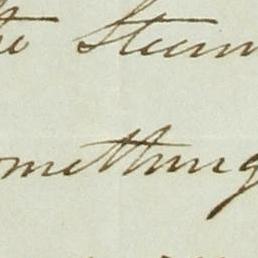 the Steam
omething